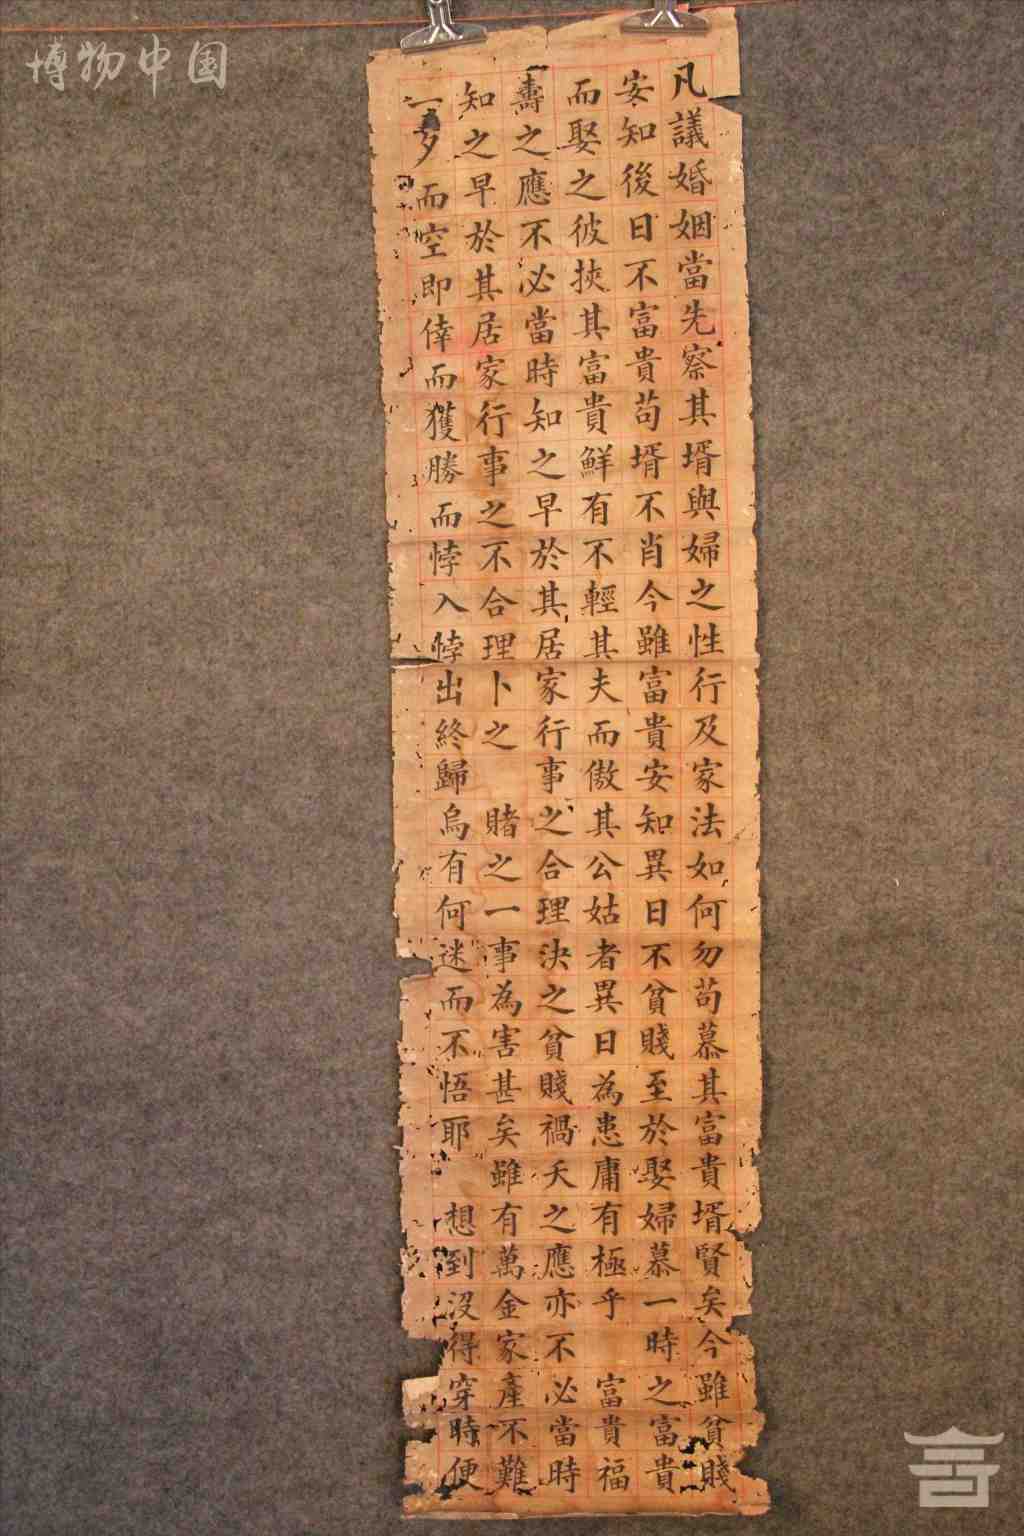 博物中国
凡議婚姻當先察其壻與婦之性行及家法如何勿苟慕其富貴壻賢矣今雖貧賤
安知後日不富貴苟壻不肖今雖富貴安知異日不貧賤至於娶婦慕一時之富貴
而娶之彼挾其富貴鮮有不輕其夫而傲其公姑者異日為患庸有極乎　富貴福
壽之應不必當時知之早於其居家行事之合理決之貧賤禍夭之應亦不必當時
知之早於其居家行事之不合理卜之　賭之一事為害甚矣雖有萬金家產不難
一夕而空即倖而獲勝而悖入悖出終歸烏有何迷而不悟耶　想到沒得穿時便